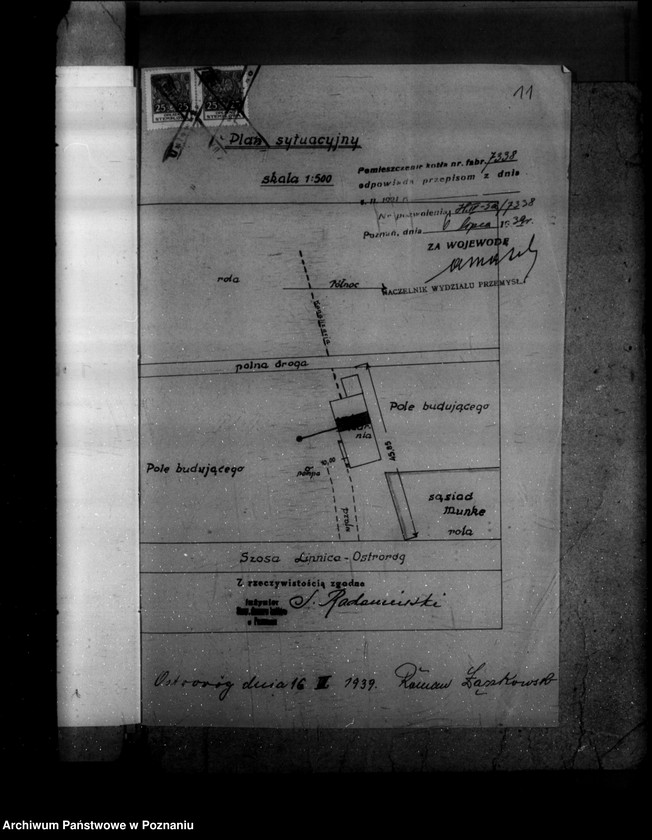 11
25 25
Plan sytuacyjny
skala 1:500
Pomieszczenie kotła nr. fabr. 7338
odpowiada przepisom z dnia
Poznań, dnia 6 lipca 1939 r.
ZA WOJEWODĘ
NACZELNIK WYDZIAŁU PRZEMYSŁ.
rola
Północ
polna droga
Pole budującego
nia
45,85
Pole budującego
pompa
wjazd
sąsiad
Munke
rola
Szosa Linnica - Ostroróg
Z rzeczywistością zgodne
Inżynier
o Poznaniu
Ostroróg dnia 16 III 1939. Roman
Archiwum Państwowe w Poznaniu